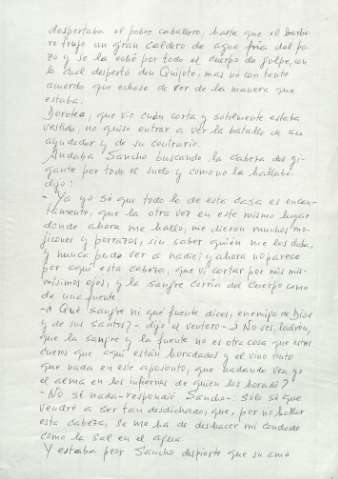 despertaba el pobre caballero, hasta que el barbe-
ro trujo un gran caldero de agua fría del po-
zo y se le echó por todo el cuerpo de golpe, con
lo cual despertó don Quijote, mas no con tanto
acuerdo que echase de ver de la manera que
estaba.
Dorotea, que vio cuán corta y sotilmente estaba
vestido, no quiso entrar a ver la batalla de su
ayudador y de su contrario.
Andaba Sancho buscando la cabeza del gi-
gante por todo el suelo y como no la hallaba
dijo:
- Ya yo sé que todo lo de esta casa es encan-
tamento, que la otra vez en este mismo lugar
donde ahora me hallo, me dieron muchos mo-
jicones y porrazos, sin saber quién me los daba,
y nunca pude ver a nadie; y ahora no parece
por aquí esta cabeza, que vi cortar por mis mis-
mísimos ojos, y la sangre corría del cuerpo como
de una fuente.
-¿ Qué sangre ni qué fuente dices, enemigo de Dios
y de sus santos? - dijo el ventero -¿ No ves, ladrón,
que la sangre y la fuente no es otra cosa que estos
cueros que aquí están horadados y el vino tinto
que nada en este aposento, que nadando vea yo
el alma en los infiernos de quien los horadó?
- NO sé nada - respondió Sancho -. Sólo sé que
vendré a ser tan desdichado, que, por no hallar
esta cabeza, se me ha de deshacer mi condado
como la sal en el agua.
Y estaba peor Sancho despierto que su amo